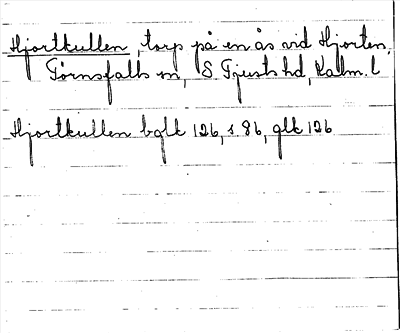 Hjortkullen, torp på en ås vid Hjorten,
Törnsfalls sn, S Tjusts hd, Kalm. l
Hjortkullen bglk 126, s. 86, glk 126